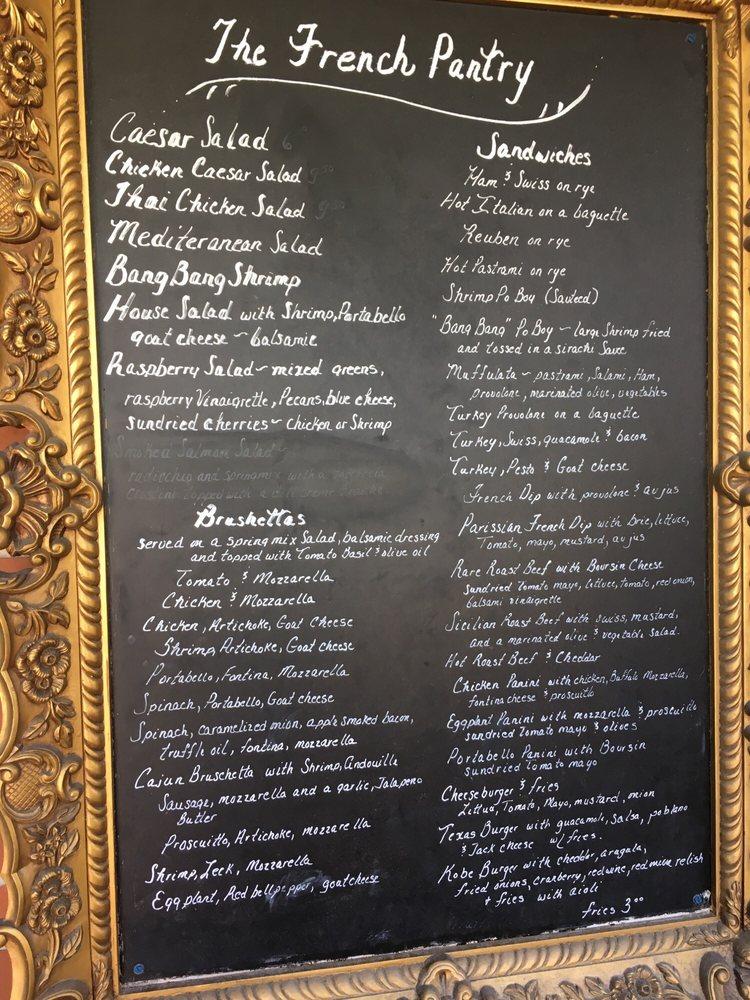 The French Pantry
Caesar Salad
Chicken Caesar Salad
Thai Chicken Salad
Mediteranean Salad
Bang Bang Shrimp
House Salad with Shrimp, Portabello
goat cheese ~ balsamic
Raspberry Salad ~ mixed greens,
raspberry Vinaigrette, Pecans, blue cheese,
sundried cherries ~ Chicken or Shrimp
Smoked Salmon Salad
radicchio and springmix with a
Crostini topped with a
Brushettas
served on a spring mix Salad, balsamic dressing
and topped with Tomato Basil & olive oil
Tomato & Mozzarella
Chicken & Mozzarella
Chicken, Artichoke, Goat Cheese
Shrimp, Artichoke, Goat cheese
Portabello, Fontina, Mozzarella
Spinach, Portabello, Goat cheese
Spinach, caramelized onion, apple smoked bacon,
truffle oil, fontina, mozzarella
Cajun Bruschetta with Shrimp, Andouille
Sausage, mozzarella and a garlic, Jalapeno
Butter
Proscuitto, Artichoke, mozzarella
Shrimp, Leek, Mozzarella
Eggplant, Red bell pepper, goat cheese
Sandwiches
Ham & Swiss on rye
Hot Italian on a baguette
Reuben on rye
Hot Pastrami on rye
Shrimp Po Boy (Sauteed)
"Bang Bang" Po Boy ~ large Shrimp fried
and tossed in a sirachi Sauce
Muffulata ~ pastrami, Salami, Ham,
provolone, marinated olive, vegetables
Turkey Provolone on a baguette
Turkey, Swiss, guacamole & bacon
Turkey, Pesto & Goat cheese
French Dip with provolone & au jus
Parissian French Dip with Brie, lettuce,
Tomato, mayo, mustard, au jus
Rare Roast Beef with Boursin Cheese
sundried tomato mayo, lettuce, tomato, red onion,
balsami vinaigrette
Sicilian Roast Beef with swiss, mustard,
and a marinated olive & vegetable salad.
Hot Roast Beef & Cheddar
Chicken Panini with chicken, Buffalo Mozzarella,
fontina cheese & proscuitto
Eggplant Panini with mozzarella & proscuitto
sundried tomato mayo & olives
Portabello Panini with Boursin
sundried tomato mayo
Cheeseburger & fries
Lettuce, Tomato, Mayo, mustard, onion
Texas Burger with guacamole, salsa, poblano
& Jack cheese w/ fries.
Kobe Burger with cheddar, arugala,
fried onions, cranberry, red wine, red onion relish
+ fries with aioli
fries 3.00